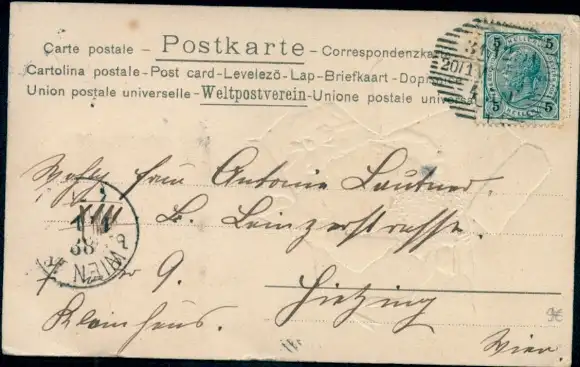 Carte postale – Postkarte – Correspondenzka
Cartolina postale - Post card - Levelezö - Lap - Briefkaart - Dopis
Union postale universelle - Weltpostverein - Unione postale universa
5 5
HELLER
5 5
20/1
Frau Antonie Lautner.
Leinzerstrasse.
WIEN
9. Hietzing
Kleinhaus. Wien
9€